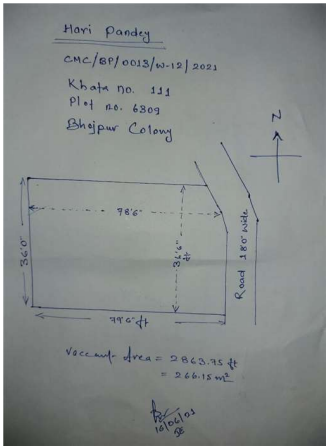 Hari Pandey
CMC/BP/0013/W-12/2021
Khata no. 111
Plot no. 6309
Bhojpur Colony
N
78'6"
36'0"
36'6" ft
Road 18'0" Wide
79'6" ft
Vaccant Area = 2863.75 ft
= 266.15 m²